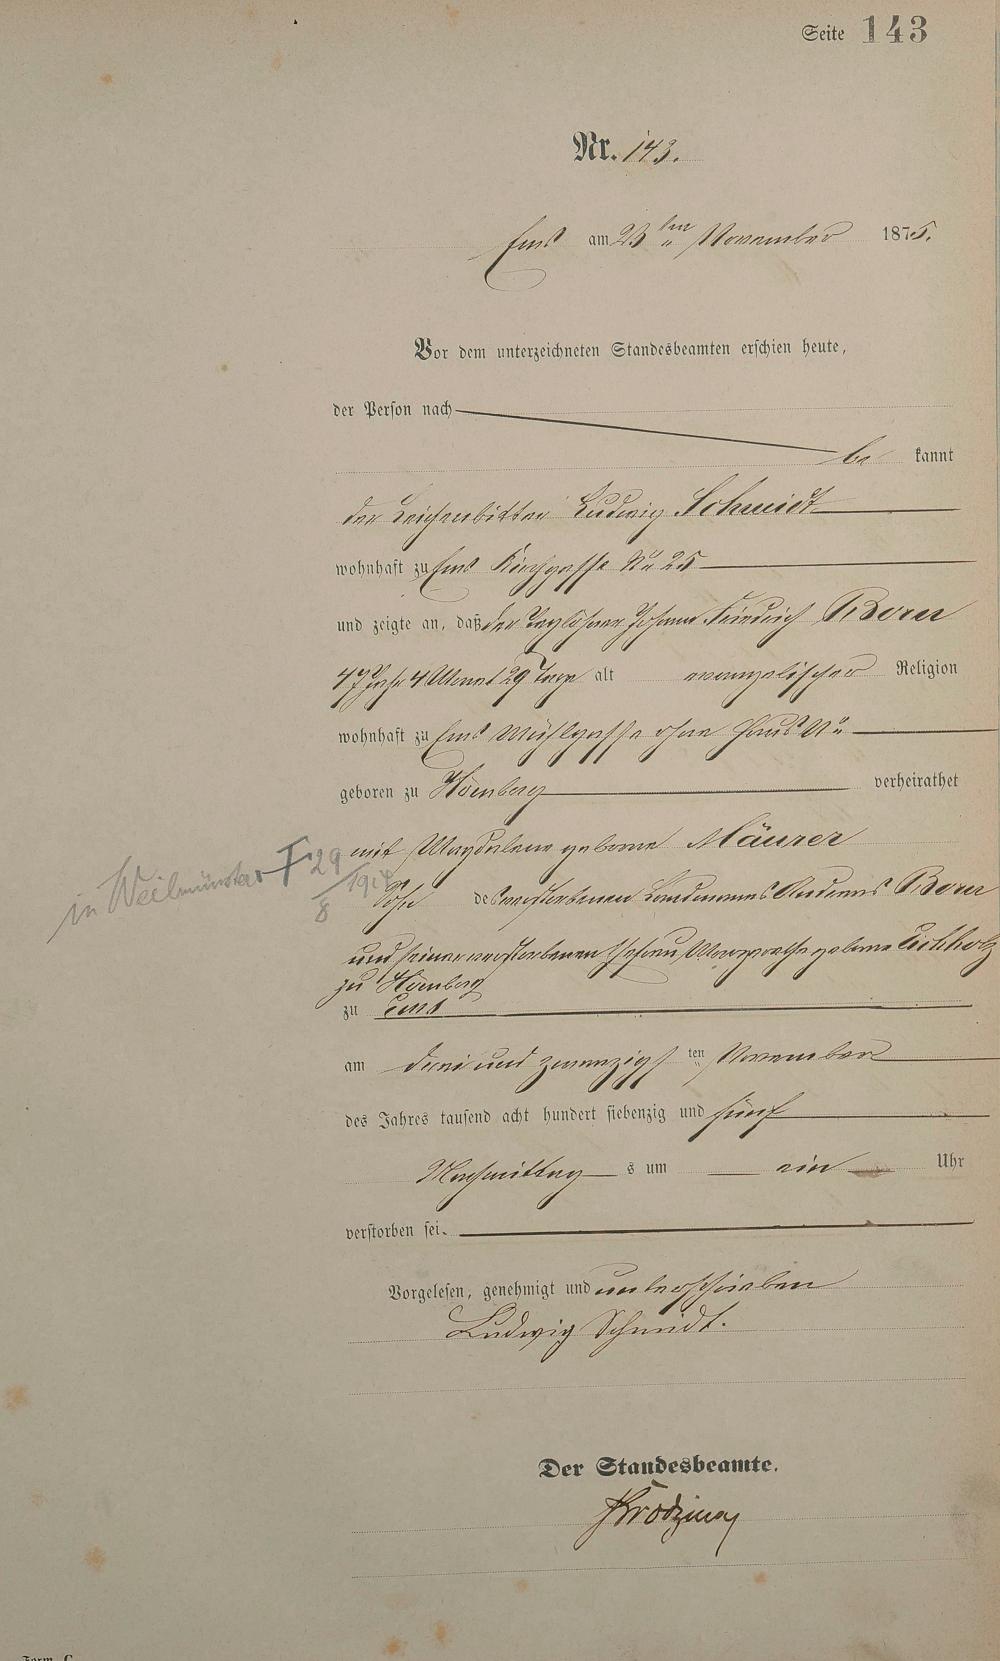 Seite 143
Nr. 143.
Ems am 23ten November 1875.
Vor dem unterzeichneten Standesbeamten erschien heute,
der Person nach
be kannt
der Leichenbitter Ludwig Schmidt
wohnhaft zu Ems Kirchgasse No 25
und zeigte an, daß der Taglöhner Johann Friedrich Born
47 Jahr 4 Monat 29 Tage alt evangelischer Religion
wohnhaft zu Ems Mühlgasse ohne Haus No
geboren zu Hömberg verheirathet
mit Magdalene geborne Mäurer
in Weilmünster † 29/8 191
Sohn des verstorbenen Landmannes Andreas Born
und seiner verstorbenen Ehefrau Margrethe geborne Eichholz
zu Hömberg
zu Ems
am drei und zwanzigsten November
des Jahres tausend acht hundert siebenzig und fünf
Nachmittag s um ein Uhr
verstorben sei.
Vorgelesen, genehmigt und unterschrieben
Ludwig Schmidt.
Der Standesbeamte.
Form. C.